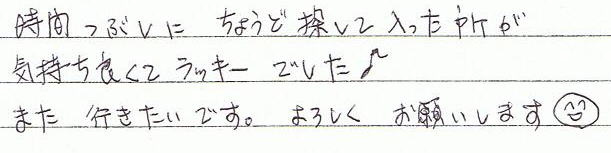 時間つぶしに ちょうど探して入った所が
気持ち良くて ラッキーでした♪
また 行きたいです。 よろしく お願いします